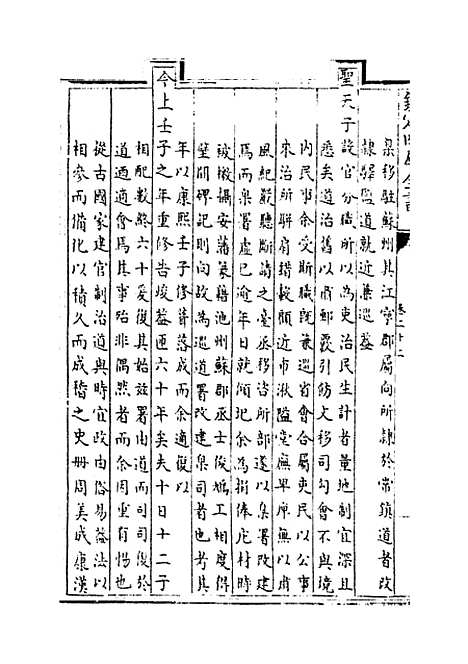 欽定四庫全書
卷二十二
臬移駐蘇州其江寧郡屬向所隸於常鎮道者改
隸驛鹽道就近兼巡葢
聖天子設官分職所以為吏治民生計者量地制宜深且
悉矣道治舊以肅郵覈引飭文移司勾會不與境
内民事余受斯職既兼巡省會合屬吏民以公事
來治所駢肩錯轂顧近市湫隘堂廡卑庳無以肅
風紀嚴聽斷請之臺丞移咨所部遂以臬署改建
焉而臬署虛已逾年日就傾圮余為捐俸庀材時
被檄攝安藩篆藉池州蘇郡丞士俊鳩工相度得
壁間碑記則向故為巡道署改建臬司者也考其
年以康熙壬子修葺落成而余適復以
今上壬子之年重修告竣葢匝六十年矣夫十日十二子
相配數終六十爰復其始兹署由道而司司復於
道適適會焉其事殆非偶然者而余因重有惕也
從古國家建官制治道與時宜政由俗易葢法以
相參而備化以積久而成稽之史册周美成康漢